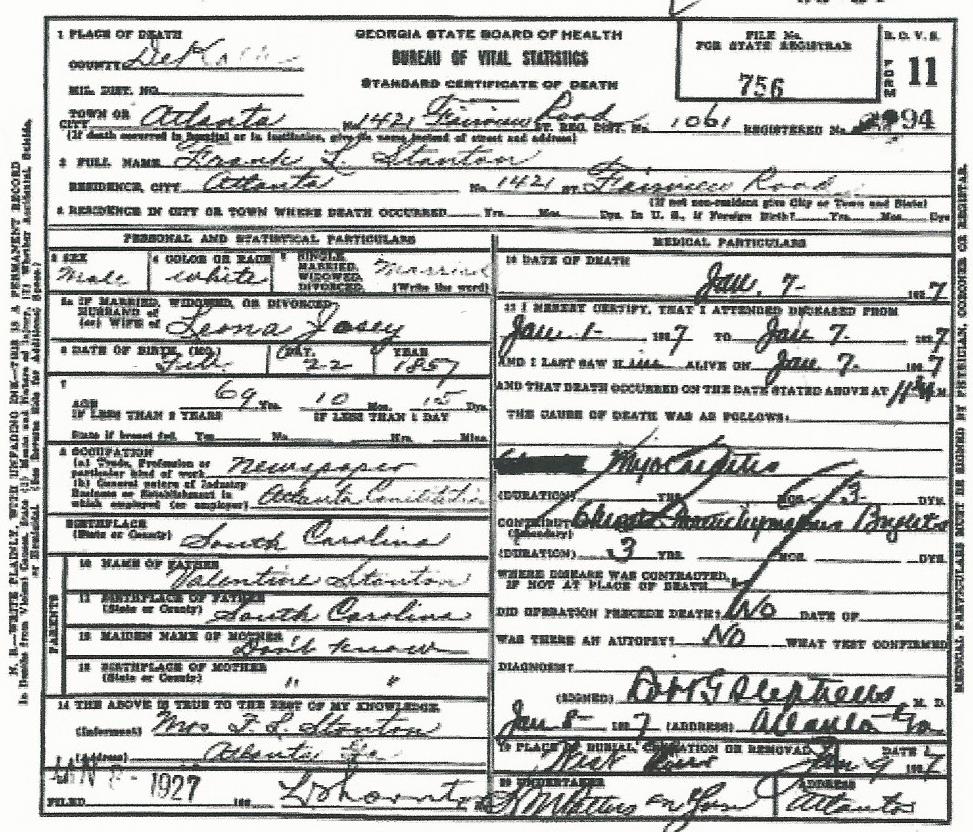 1 PLACE OF DEATH
GEORGIA STATE BOARD OF HEALTH
BUREAU OF VITAL STATISTICS
STANDARD CERTIFICATE OF DEATH
FILE No.
FOR STATE REGISTRAR
756
FORM 11
COUNTY DeKalb
MIL. DIST. NO.
TOWN OR CITY Atlanta No. 1421 Fairview Road ST. REG. DIST. No. 1061 REGISTERED No. 94
(If death occurred in hospital or in institution, give its name instead of street and address)
2 FULL NAME Frank L. Stanton
RESIDENCE, CITY Atlanta No. 1421 ST. Fairview Road
(If not non-resident give City or Town and State)
RESIDENCE IN CITY OR TOWN WHERE DEATH OCCURRED Yrs. Mos. Dys. In U. S., if Foreign Birth? Yrs. Mos. Dys
PERSONAL AND STATISTICAL PARTICULARS
3 SEX Male
4 COLOR OR RACE white
SINGLE, MARRIED, WIDOWED, DIVORCED. Married
(Write the word)
5a IF MARRIED, WIDOWED, OR DIVORCED
HUSBAND of
(or) WIFE of Leona Josey
6 DATE OF BIRTH (MO.) Feb. DAY. 22 YEAR 1857
7 AGE 69 Yrs. 10 Mos. 15 Dys.
IF LESS THAN 2 YEARS IF LESS THAN 1 DAY
State if breast fed. Yes No. Hrs. Mins.
8 OCCUPATION
(a) Trade, Profession or particular kind of work Newspaper
(b) General nature of Industry Business or Establishment in which employed (or employer) Atlanta Constitution
BIRTHPLACE
(State or County) South Carolina
PARENTS
10 NAME OF FATHER Valentine Stanton
11 BIRTHPLACE OF FATHER
(State or County) South Carolina
12 MAIDEN NAME OF MOTHER Don't Know
13 BIRTHPLACE OF MOTHER
(State or County) " "
14 THE ABOVE IS TRUE TO THE BEST OF MY KNOWLEDGE.
(Informant) Mrs F. L. Stanton
(Address) Atlanta Ga
JAN 8 - 1927
FILED
MEDICAL PARTICULARS
16 DATE OF DEATH
Jan. 7- 1927
17 I HEREBY CERTIFY, THAT I ATTENDED DECEASED FROM
Jan. 1- 1927 TO Jan 7. 1927
AND I LAST SAW Him ALIVE ON Jan 7. 1927
AND THAT DEATH OCCURRED ON THE DATE STATED ABOVE AT M.
THE CAUSE OF DEATH WAS AS FOLLOWS:
Myocarditis
(DURATION) YRS. MOS. 3 DYS.
CONTRIBUTORY Chronic Parenchymatous Brights
(Secondary)
(DURATION) 3 YRS. MOS. DYS.
WHERE DISEASE WAS CONTRACTED,
IF NOT AT PLACE OF DEATH
DID OPERATION PRECEDE DEATH? No DATE OF
WAS THERE AN AUTOPSY? No WHAT TEST CONFIRMED
DIAGNOSIS?
(SIGNED) Stephens M. D.
Jan 8- 1927 (ADDRESS) Atlanta Ga
19 PLACE OF BURIAL, CREMATION OR REMOVAL DATE
West View Jan 9 1927
20 UNDERTAKER H M Patterson & Son
ADDRESS Atlanta
N. B.—WRITE PLAINLY, WITH UNFADING INK—THIS IS A PERMANENT RECORD
MEDICAL PARTICULARS MUST BE SIGNED BY PHYSICIAN, CORONER OR REGISTRAR.